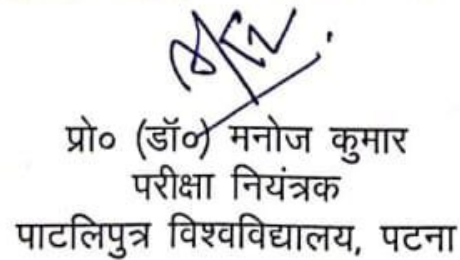 प्रो० (डॉ०) मनोज कुमार
परीक्षा नियंत्रक
पाटलिपुत्र विश्वविद्यालय, पटना